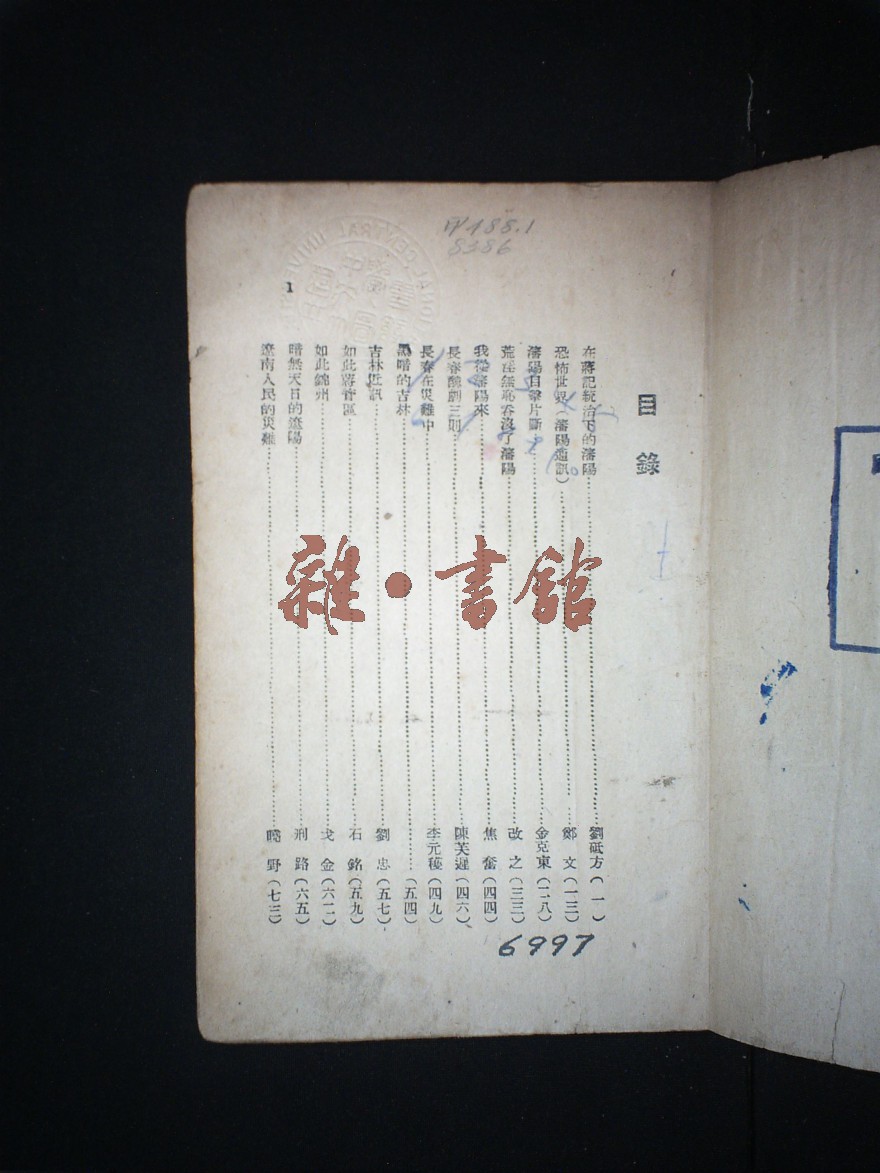 目錄
在蔣記統治下的瀋陽……劉砥方(一)
恐怖世界(瀋陽通訊)……鄭文(一三)
瀋陽目擊片斷……金克東(二八)
荒淫無恥吞沒了瀋陽……改之(三三)
我從瀋陽來……焦奮(四四)
長春醜劇三則……陳芙遲(四六)
長春在災難中……李元穫(四九)
黑暗的吉林……(五四)
吉林近訊……劉忠(五七)
如此蔣管區……石銘(五九)
如此錦州……戈金(六二)
暗無天日的遼陽……刑路(六五)
遼南人民的災難……曉野(七三)
1
188.1
8386
6997
雜·書舘